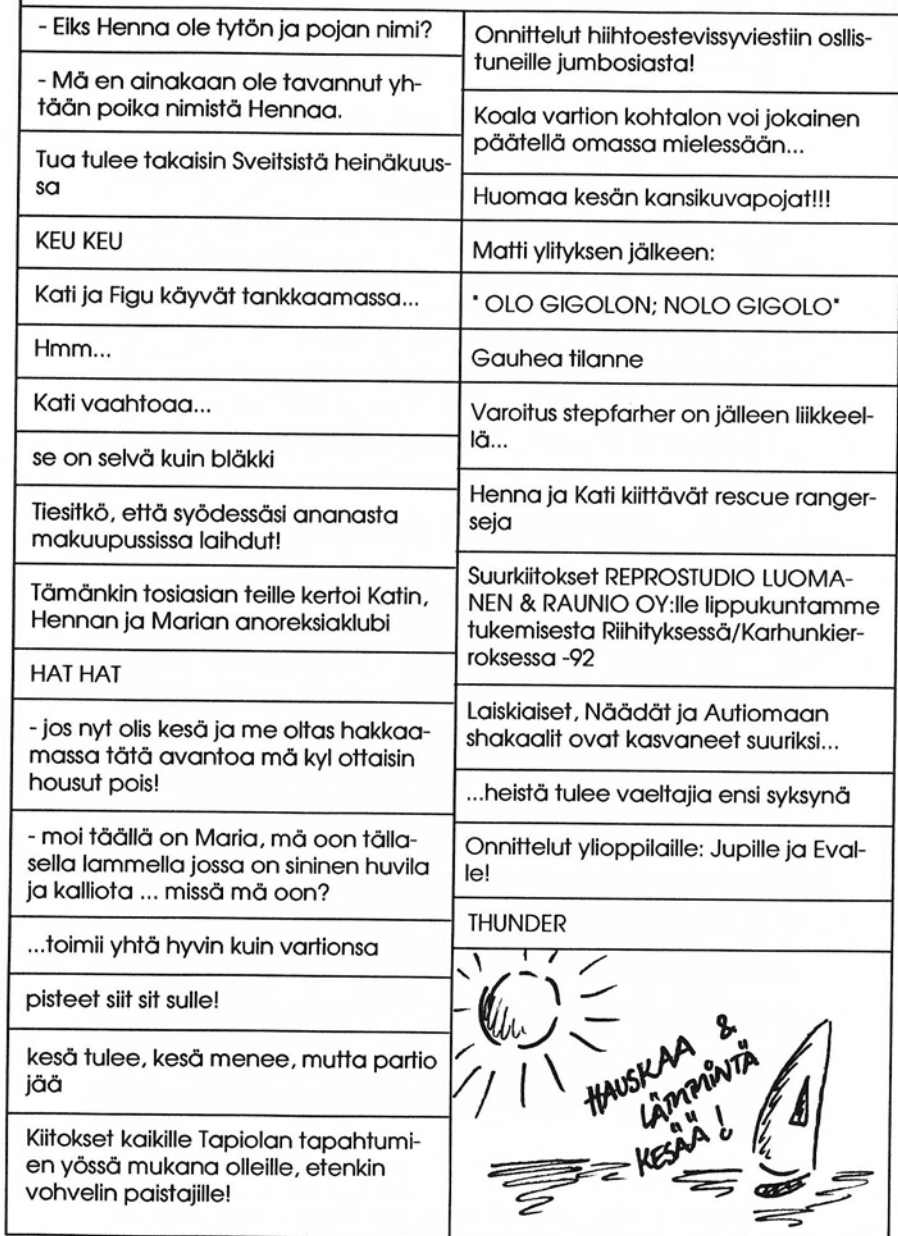 - Eiks Henna ole tytön ja pojan nimi?
- Mä en ainakaan ole tavannut yh-
tään poika nimistä Hennaa.
Tua tulee takaisin Sveitsistä heinäkuus-
sa
KEU KEU
Kati ja Figu käyvät tankkaamassa...
Hmm...
Kati vaahtoaa...
se on selvä kuin bläkki
Tiesitkö, että syödessäsi ananasta
makuupussissa laihdut!
Tämänkin tosiasian teille kertoi Katin,
Hennan ja Marian anoreksiaklubi
HAT HAT
- jos nyt olis kesä ja me oltas hakkaa-
massa tätä avantoa mä kyl ottaisin
housut pois!
- moi täällä on Maria, mä oon tälla-
sella lammella jossa on sininen huvila
ja kalliota ... missä mä oon?
...toimii yhtä hyvin kuin vartionsa
pisteet siit sit sulle!
kesä tulee, kesä menee, mutta partio
jää
Kiitokset kaikille Tapiolan tapahtumi-
en yössä mukana olleille, etenkin
vohvelin paistajille!
Onnittelut hiihtoestevissyviestiin osllis-
tuneille jumbosiasta!
Koala vartion kohtalon voi jokainen
päätellä omassa mielessään...
Huomaa kesän kansikuvapojat!!!
Matti ylityksen jälkeen:
" OLO GIGOLON; NOLO GIGOLO"
Gauhea tilanne
Varoitus stepfarher on jälleen liikkeel-
lä...
Henna ja Kati kiittävät rescue ranger-
seja
Suurkiitokset REPROSTUDIO LUOMA-
NEN & RAUNIO OY:lle lippukuntamme
tukemisesta Riihityksessä/Karhunkier-
roksessa -92
Laiskiaiset, Näädät ja Autiomaan
shakaalit ovat kasvaneet suuriksi...
...heistä tulee vaeltajia ensi syksynä
Onnittelut ylioppilaille: Jupille ja Eval-
le!
THUNDER
HAUSKAA &
LÄMMINTÄ
KESÄÄ!